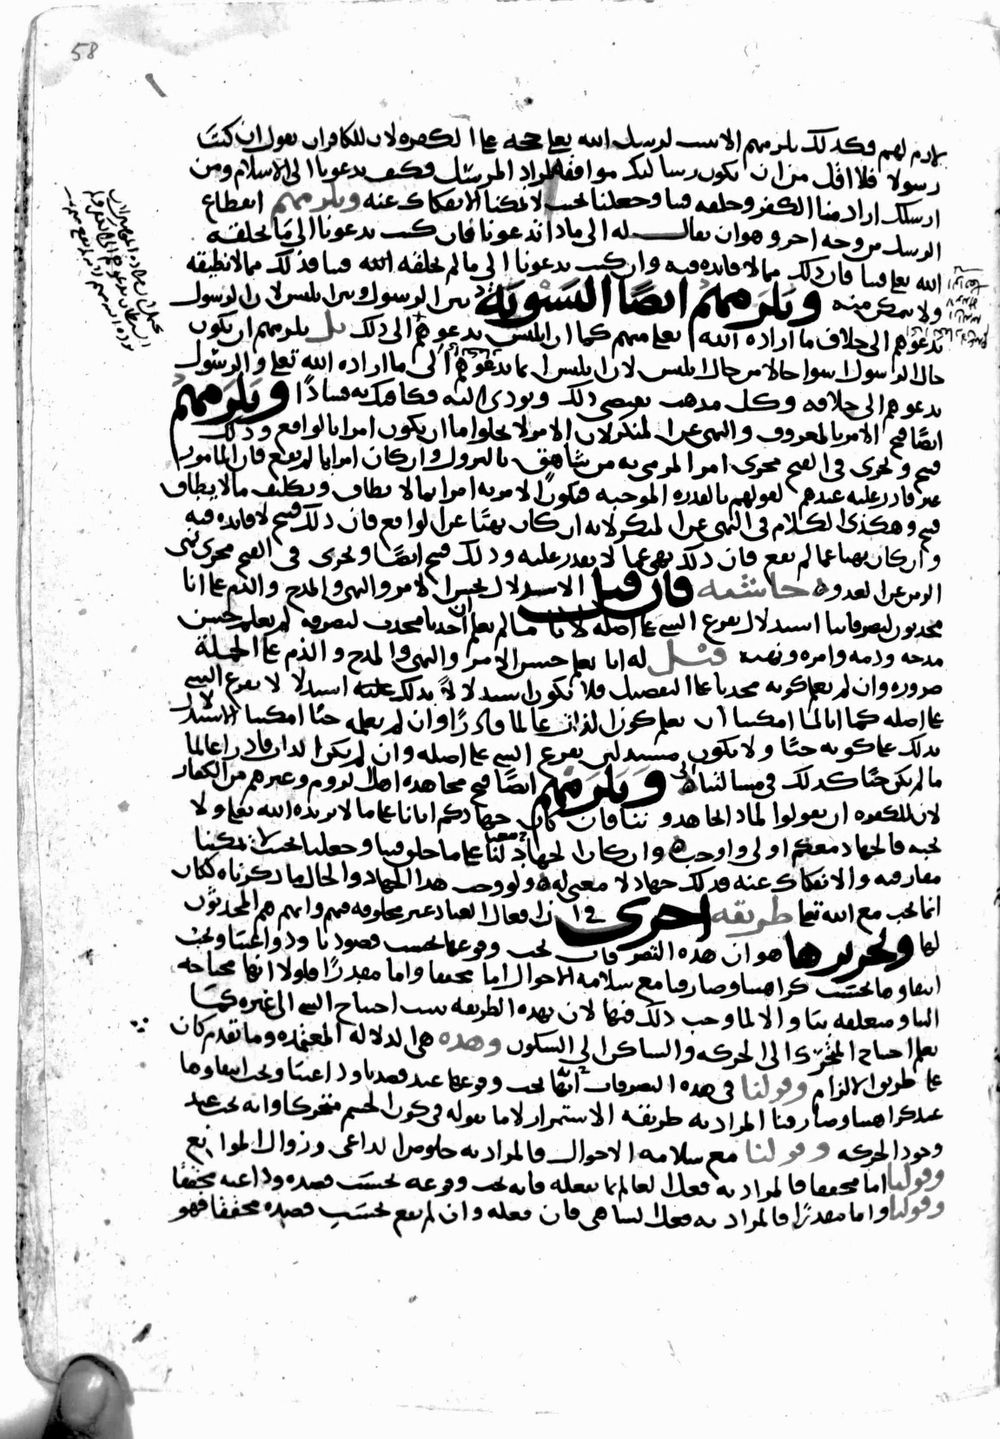 58
لازم لهم وكذلك يلزمهم الا يثبت لرسل الله تعالى حجة على الكفرة لان للكافر ان يقول ان كنت
رسولا فلا اقل من ان يكون رسالتك موافقة لمراد المرسل وكيف تدعونا الى الاسلام ومن
ارسلك اراد منا الكفر وخلقه فينا وجعلنا بحيث لا يمكننا الانفكاك عنه ويلزمهم انقطاع
الرسل من وجه اخر وهو ان يقال له الى ماذا تدعونا فان كنت تدعونا الى ما يخلقه
الله تعالى فينا فان ذلك مما لا فائدة فيه وان كنت تدعونا الى ما لم يخلقه الله فينا فذلك مما لا نطيقه
ولا نتمكن منه ويلزمهم ايضا التسوية بين الرسول وبين ابليس لان الرسول
يدعوهم الى خلاف ما اراده الله تعالى منهم كما ان ابليس يدعوهم الى ذلك بل يلزمهم ان يكون
حال الرسول اسوا حالا من حال ابليس لان ابليس انما يدعوهم الى ما اراده الله تعالى والرسول
يدعوهم الى خلافه وكل مذهب يقتضي ذلك ويؤدي اليه فكافيك به فسادا ويلزمهم
ايضا قبح الامر بالمعروف والنهي عن المنكر لان الامر لا يخلو اما ان يكون امرا بالواقع وذلك
قبيح ويجري في القبح مجرى امر المرمي به من شاهق بالنزول وان كان امرا بما لم يقع فان المامور
غير قادر عليه عندهم لقولهم بالقدرة الموجبة فيكون الامر به امرا بما لا يطاق وتكليف ما لا يطاق
قبيح وهكذى الكلام في النهي عن المنكر لانه ان كان نهيا عن الواقع فان ذلك قبيح لا فائدة فيه
وان كان نهيا عما لم يقع فان ذلك نهي عما لا يقدر عليه وذلك قبيح ايضا ويجري في القبح مجرى نهي
الزمن عن العدو حاشية فان قيل الاستدلال بحسن الامر والنهي والمدح والذم على انا
محدثون لتصرفاتنا استدلال بفرع الشي على اصله لانا ما لم نعلم ان احدنا محدث لتصرفه لم نعلم حسن
مدحه وذمه وامره ونهيه قيل له انا نعلم حسن الامر والنهي والمدح والذم على الجملة
ضرورة وان لم نعلم كونه محدثا على التفصيل فلا يكون استدلالا بذلك عليه استدلالا لا بفرع الشي
على اصله كما انا لما امكننا ان نعلم كون الذات عالما قادرا وان لم نعلمه حيا امكننا الاستدلال
بذلك على كونه حيا ولا نكون مستدلين بفرع الشي على اصله وان لم يكن الذات قادرا عالما
ما لم يكن حيا كذلك في مسالتنا ويلزمهم ايضا قبح مجاهدة اهل الروم وغيرهم من الكفار
لان للكفرة ان يقولوا لماذا تجاهدوننا فان كان جهادكم ايانا على ما لا يريده الله تعالى ولا
يحبه فالجهاد معكم اولى واوجب وان كان الجهاد لنا على ما خلق فينا وجعلنا بحيث لا يمكننا
مفارقته والانفكاك عنه فذلك جهاد لا معنى له ولو وجب هذا الجهاد والحال ما ذكرناه لكان
انما يجب مع الله تعالى طريقة اخرى في ان افعال العباد غير مخلوقة فيهم وانهم هم المحدثون
لها وتحريرها هو ان هذه التصرفات يجب وقوعها بحسب قصودنا ودواعينا ويجب
انتفاؤها بحسب كراهتنا وصارفنا مع سلامة الاحوال اما محققا واما مقدرا فلولا انها محتاجة
الينا ومتعلقة بنا والا لما وجب ذلك فيها لان بهذه الطريقة يثبت احتياج الشي الى غيره كما
نعلم احتياج المتحرك الى الحركة والساكن الى السكون وهذه هي الدلالة المعتمدة وما تقدم كان
على طريق الالزام وقولنا في هذه التصرفات انها يجب وقوعها عند قصدنا وداعينا ويجب انتفاؤها
عند كراهتنا وصارفنا المراد به طريقة الاستمرار لا ما نقوله في كون الجسم متحركا وانه يجب عند
وجود الحركة وقولنا مع سلامة الاحوال فالمراد به خلوص الداعي وزوال الموانع
وقولنا اما محققا فالمراد به فعل العالم بما يفعله فانه يجب وقوعه بحسب قصده وداعيه محققا
وقولنا واما مقدرا فالمراد به فعل الساهي فان فعله وان لم يقع بحسب قصده محققا فهو